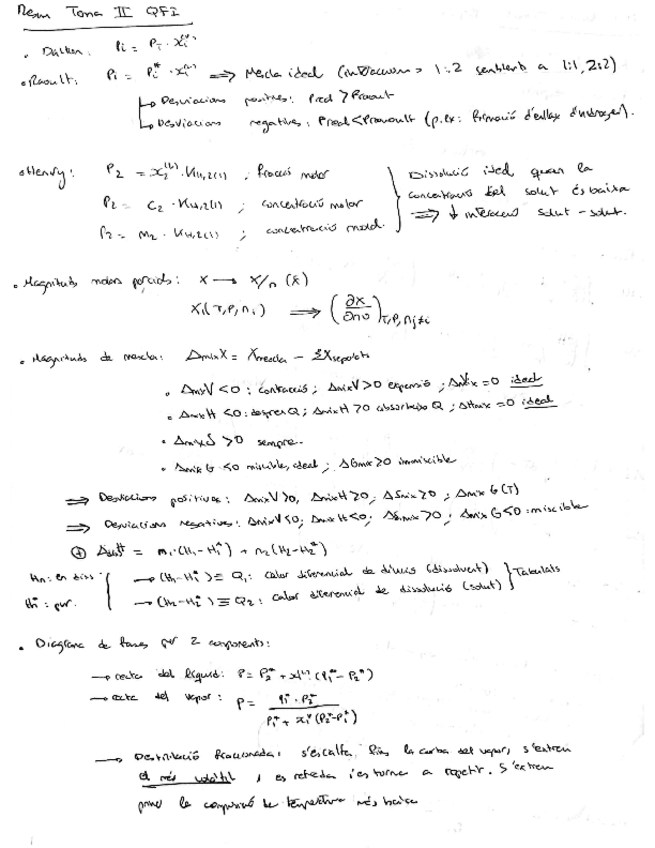 Resum Tema II QFI
• Dalton: Pi = PT · xi(v)
• Raoult: Pi = Pi* · xi(l) ⟹ Mescla ideal (interaccions 1:2 semblants a 1:1, 2:2)
↳ Desviacions positives: Preal > Praoult
↳ Desviacions negatives: Preal < Praoult (p.ex: formació d'enllaç d'hidrogen).
• Henry: P2 = x2(l) · KH,2(1) ; fracció molar
P2 = C2 · KH,2(1) ; concentració molar
P2 = m2 · KH,2(1) ; concentració molal.
Dissolució ideal quan la
concentració del solut és baixa
⟹ ↓ interacció solut - solut.
• Magnituds molars parcials: X → X/n (x̄)
Xi(T,P,ni) ⟹ (∂X/∂ni)T,P,nj≠i
• Magnituds de mescla: ΔmixX = Xmescla − ΣXseparats
• ΔmixV < 0: contracció ; ΔmixV > 0 expansió ; ΔmixV = 0 ideal
• ΔmixH < 0: despren Q ; ΔmixH > 0 absorbeix Q ; ΔHmix = 0 ideal
• ΔmixS > 0 sempre.
• ΔmixG ≤ 0 miscible, ideal ; ΔGmix ≥ 0 immiscible
⟹ Desviacions positives: ΔmixV > 0, ΔmixH > 0 ; ΔSmix > 0 ; ΔmixG (T)
⟹ Desviacions negatives: ΔmixV < 0 ; ΔmixH < 0 ; ΔSmix > 0 ; ΔmixG < 0: miscible
= n1·(H1−H1*) + n2(H2−H2*)
Hn: en diss → (H1−H1*) ≡ Q1: calor diferencial de dilució (dissolvent) } Tabulats
Hi*: pur. → (H2−H2*) ≡ Q2: calor diferencial de dissolució (solut)
• Diagrama de fases per 2 components:
→ recta del líquid: P = P2* + x1(l) (P1* − P2*)
→ del vapor: P = P1* · P2* / P1* + x1v (P2* − P1*)
→ Destil·lació fraccionada: s'escalfa fins la corba del vapor, s'extreu
el més volàtil, es refreda i es torna a repetir. S'extreu
primer la composició de temperatura més baixa